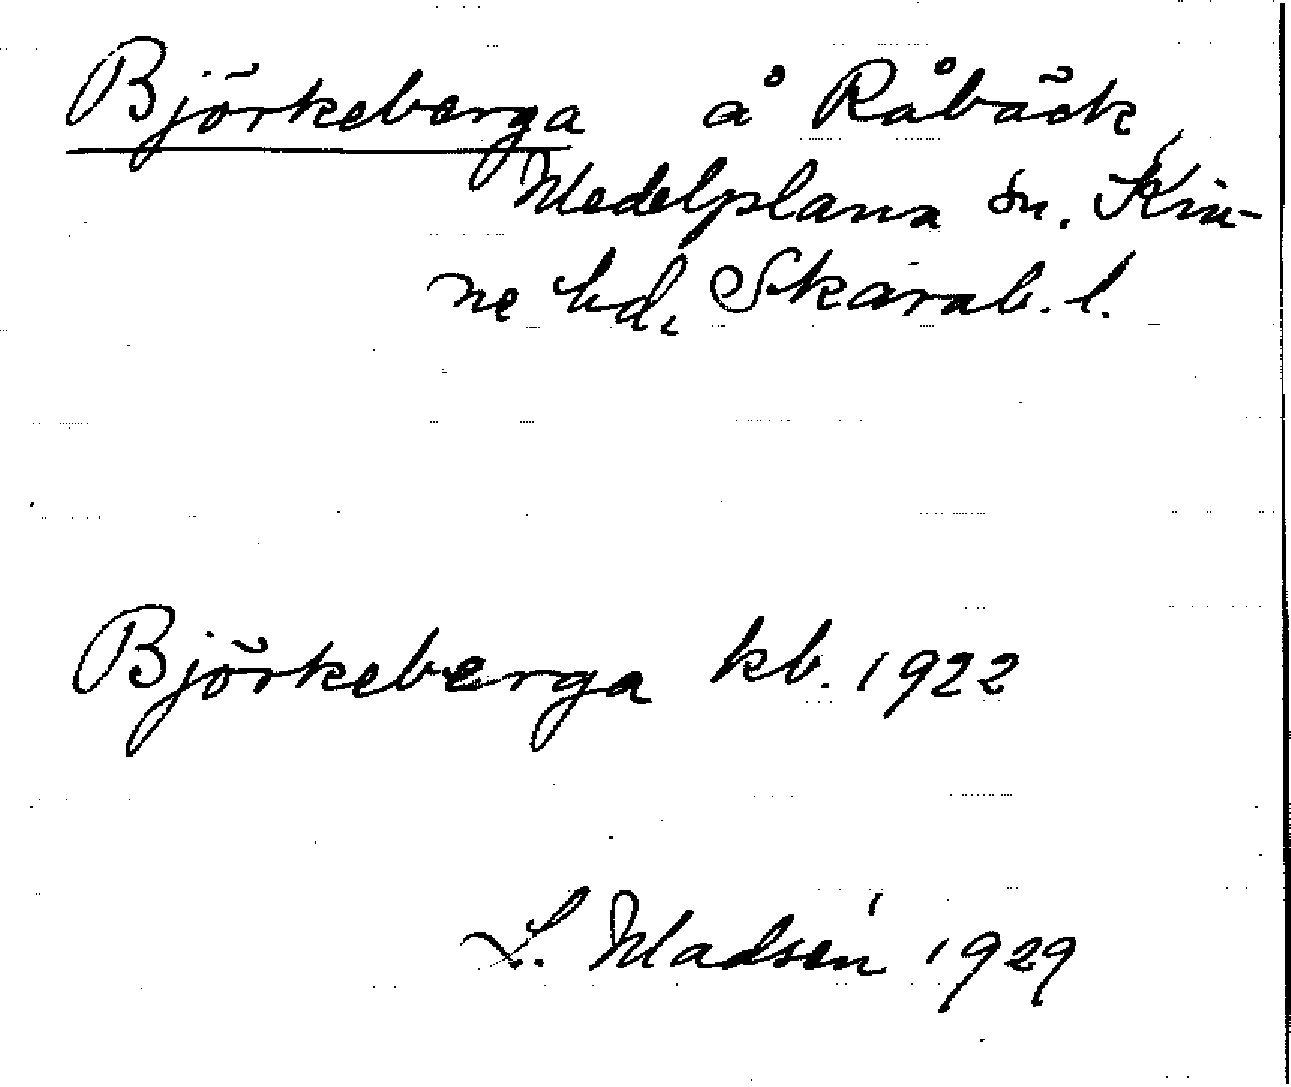 Björkeberga å Råbäck,
Medelplana sn. Kin-
ne hd, Skarab. l.
Björkeberga kb. 1922
L. Madsén 1929